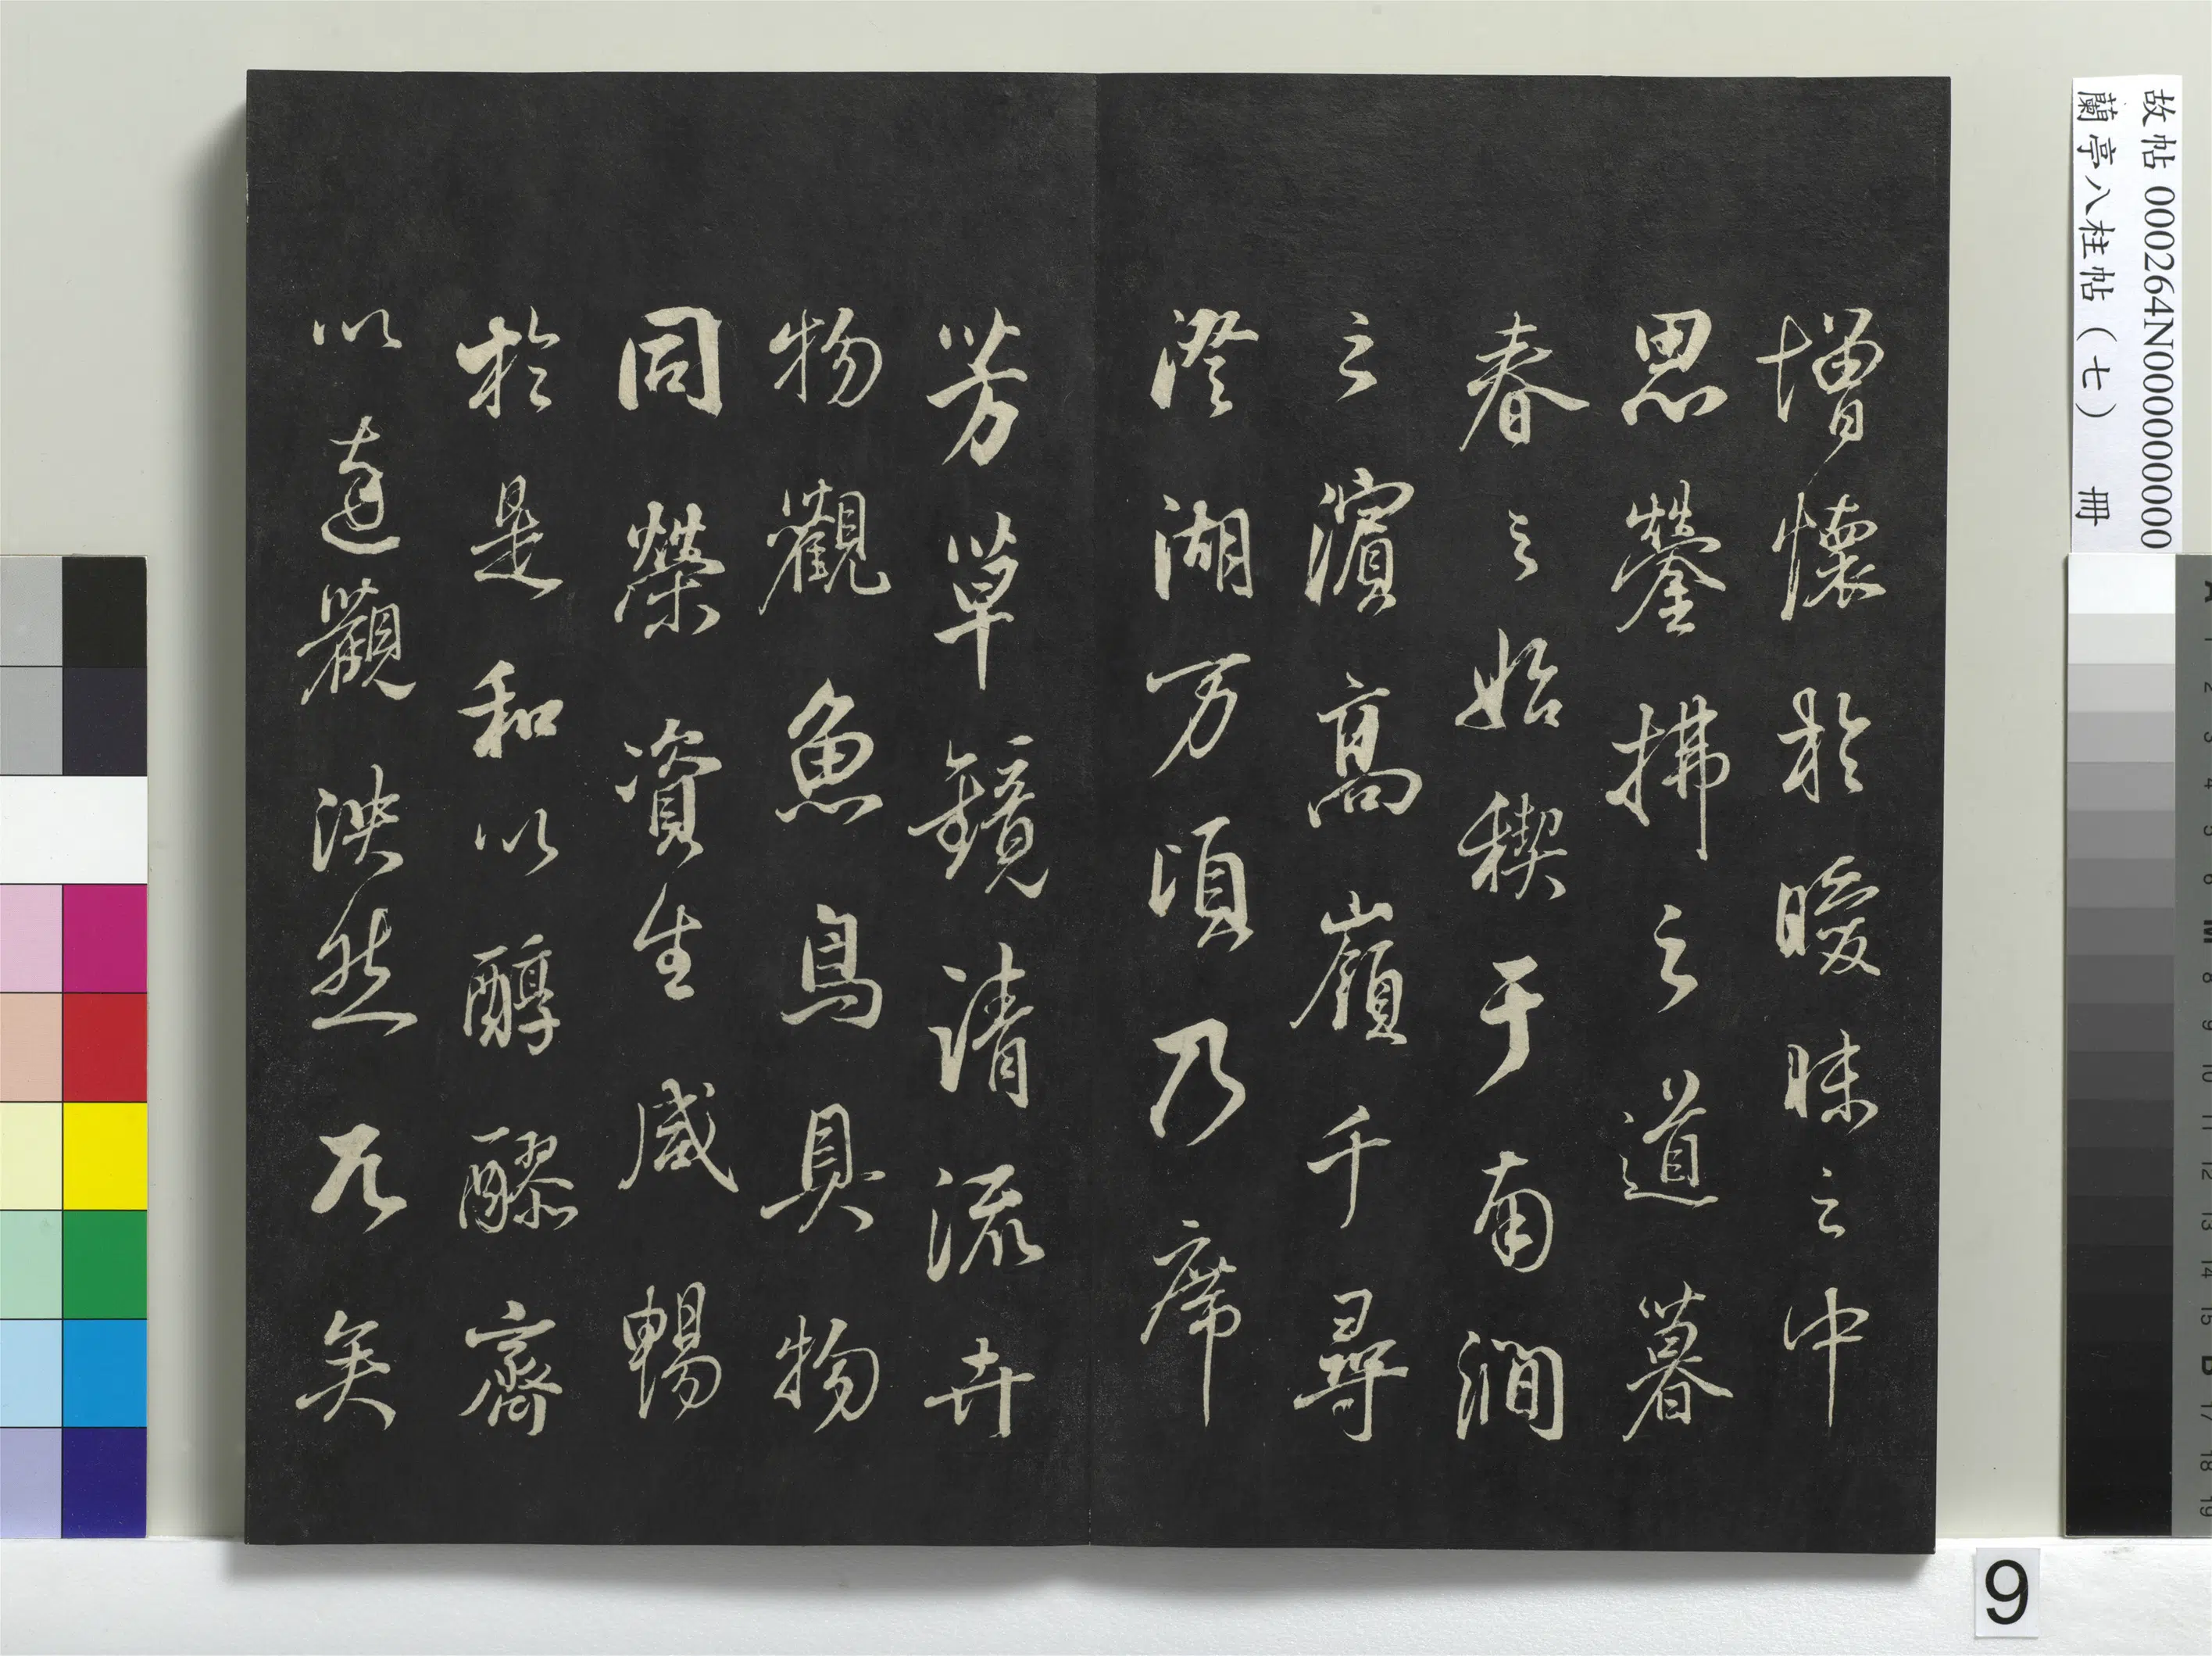 增懷於曖昧之中
思鎣拂之道暮
春之始稧于南澗
之濱高嶺千尋
澄湖万頃乃席
芳草鏡清流卉
物觀魚鳥具物
同榮資生咸暢
於是和以醇醪齊
以達觀泱然兀矣
故帖 000264N000000000
蘭亭八柱帖（七） 冊
9